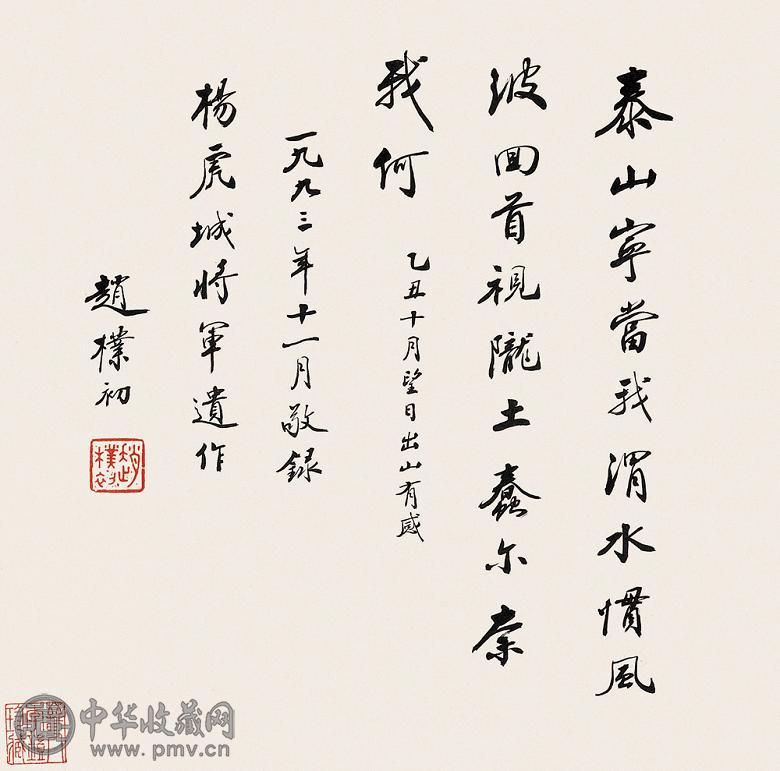 泰山寧當我渭水慣風
波囬首視隴土蠢尔柰
我何
乙丑十月望日出山有感
一九九三年十一月敬録
楊虎城將軍遺作
趙樸初
趙樸初
中华收藏网
www.pmv.cn